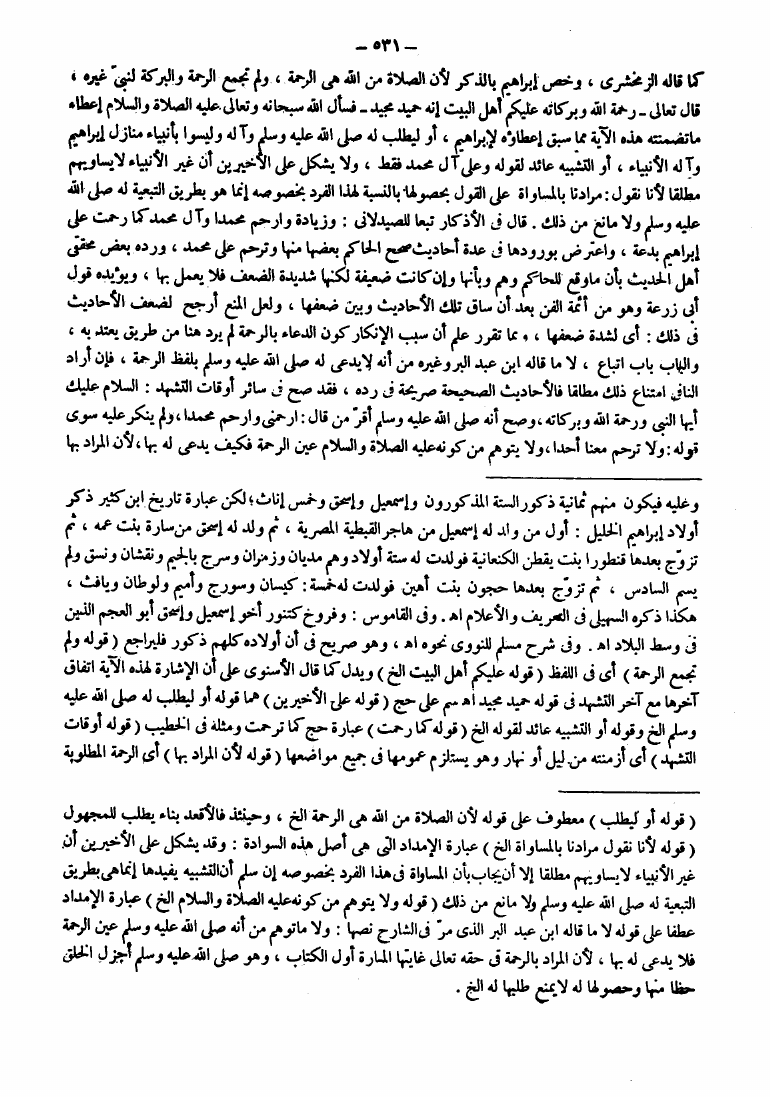 — ٥٣١ —
كما قاله الزمخشرى ، وخص إبراهيم بالذكر لأن الصلاة من الله هى الرحمة ، ولم تجمع الرحمة والبركة لنبيّ غيره ،
قال تعالى ـ رحمة الله وبركاته عليكم أهل البيت إنه حميد مجيد ـ فسأل الله سبحانه وتعالى عليه الصلاة والسلام إعطاء
ماتضمنته هذه الآية مما سبق إعطاؤه لإبراهيم ، أو ليطلب له صلى الله عليه وسلم وآله وليسوا بأنبياء منازل إبراهيم
وآله الأنبياء ، أو التشبيه عائد لقوله وعلى آل محمد فقط ، ولا يشكل على الأخيرين أن غير الأنبياء لايساويهم
مطلقا لأنا نقول : مرادنا بالمساواة على القول بحصولها بالنسبة لهذا الفرد بخصوصه إنما هو بطريق التبعية له صلى الله
عليه وسلم ولا مانع من ذلك . قال فى الأذكار تبعا للصيدلانى : وزيادة وارحم محمدا وآل محمد كما رحمت على
إبراهيم بدعة ، واعترض بورودها فى عدة أحاديث صحح الحاكم بعضها منها وترحم على محمد ، ورده بعض محققى
أهل الحديث بأن ماوقع للحاكم وهم وبأنها وإن كانت ضعيفة لكنها شديدة الضعف فلا يعمل بها ، ويؤيده قول
أبى زرعة وهو من أئمة الفن بعد أن ساق تلك الأحاديث وبين ضعفها ، ولعل المنع أرجح لضعف الأحاديث
فى ذلك : أى لشدة ضعفها ، ومما تقرر علم أن سبب الإنكار كون الدعاء بالرحمة لم يرد هنا من طريق يعتد به ،
والباب باب اتباع ، لا ما قاله ابن عبد البر وغيره من أنه لايدعى له صلى الله عليه وسلم بلفظ الرحمة ، فإن أراد
النافى امتناع ذلك مطلقا فالأحاديث الصحيحة صريحة فى رده ، فقد صح فى سائر أوقات التشهد : السلام عليك
أيها النبى ورحمة الله وبركاته ، وصح أنه صلى الله عليه وسلم أقرّ من قال : ارحمنى وارحم محمدا ، ولم ينكر عليه سوى
قوله : ولا ترحم معنا أحدا ، ولا يتوهم من كونه عليه الصلاة والسلام عين الرحمة فكيف يدعى له بها ، لأن المراد بها
وعليه فيكون منهم ثمانية ذكور الستة المذكورون وإسمعيل وإسحق وخمس إناث ؛ لكن عبارة تاريخ ابن كثير ذكر
أولاد إبراهيم الخليل : أول من ولد له إسمعيل من هاجر القبطية المصرية ، ثم ولد له إسحق من سارة بنت عمه ، ثم
تزوّج بعدها قنطورا بنت يقطن الكنعانية فولدت له ستة أولاد وهم مديان وزمران وسرج بالجيم ونقشان ونسق ولم
يسم السادس ، ثم تزوّج بعدها حجون بنت أهين فولدت له خمسة : كيسان وسورج وأميم ولوطان ويافث ،
هكذا ذكره السهيلى فى التعريف والأعلام اهـ . وفى القاموس : وفروخ كتنور أخو إسمعيل وإسحق أبو العجم الذين
فى وسط البلاد اهـ . وفى شرح مسلم للنووى نحوه اهـ ، وهو صريح فى أن أولاده كلهم ذكور فليراجع ( قوله ولم
تجمع الرحمة ) أى فى اللفظ ( قوله عليكم أهل البيت الخ ) ويدل كما قال الأسنوى على أن الإشارة لهذه الآية اتفاق
آخرها مع آخر التشهد فى قوله حميد مجيد اهـ سم على حج ( قوله على الأخيرين ) هما قوله أو ليطلب له صلى الله عليه
وسلم الخ وقوله أو التشبيه عائد لقوله الخ ( قوله كما رحمت ) عبارة حج كما ترحمت ومثله فى الخطيب ( قوله أوقات
التشهد ) أى أزمنته من ليل أو نهار وهو يستلزم عمومها فى جميع مواضعها ( قوله لأن المراد بها ) أى الرحمة المطلوبة
( قوله أو ليطلب ) معطوف على قوله لأن الصلاة من الله هى الرحمة الخ ، وحينئذ فالأقعد بناء يطلب للمجهول
( قوله لأنا نقول مرادنا بالمساواة الخ ) عبارة الإمداد التى هى أصل هذه السوادة : وقد يشكل على الأخيرين أن
غير الأنبياء لايساويهم مطلقا إلا أن يجاب بأن المساواة فى هذا الفرد بخصوصه إن سلم أن التشبيه يفيدها إنما هى بطريق
التبعية له صلى الله عليه وسلم ولا مانع من ذلك ( قوله ولا يتوهم من كونه عليه الصلاة والسلام الخ ) عبارة الإمداد
عطفا على قوله لا ما قاله ابن عبد البر الذى مرّ فى الشارح نصها : ولا ماتوهم من أنه صلى الله عليه وسلم عين الرحمة
فلا يدعى له بها ، لأن المراد بالرحمة فى حقه تعالى غايتها المارة أول الكتاب ، وهو صلى الله عليه وسلم أجزل الخلق
حظا منها وحصولها له لايمنع طلبها له الخ .